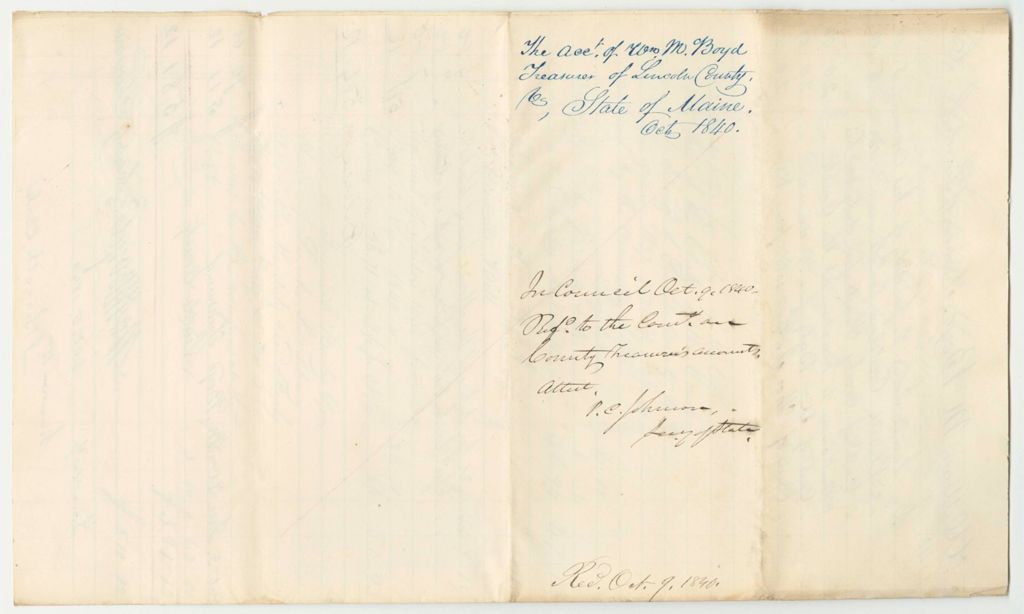 The acct. of Wm M. Boyd
Treasurer of Lincoln County.
to, State of Maine.
Oct 1840.
In Council Oct. 9. 1840.
Refd. to the Comtt. on
County Treasurer's accounts.
Attest,
P. C. Johnson,
Secy of State.
Recd. Oct. 9. 1840.